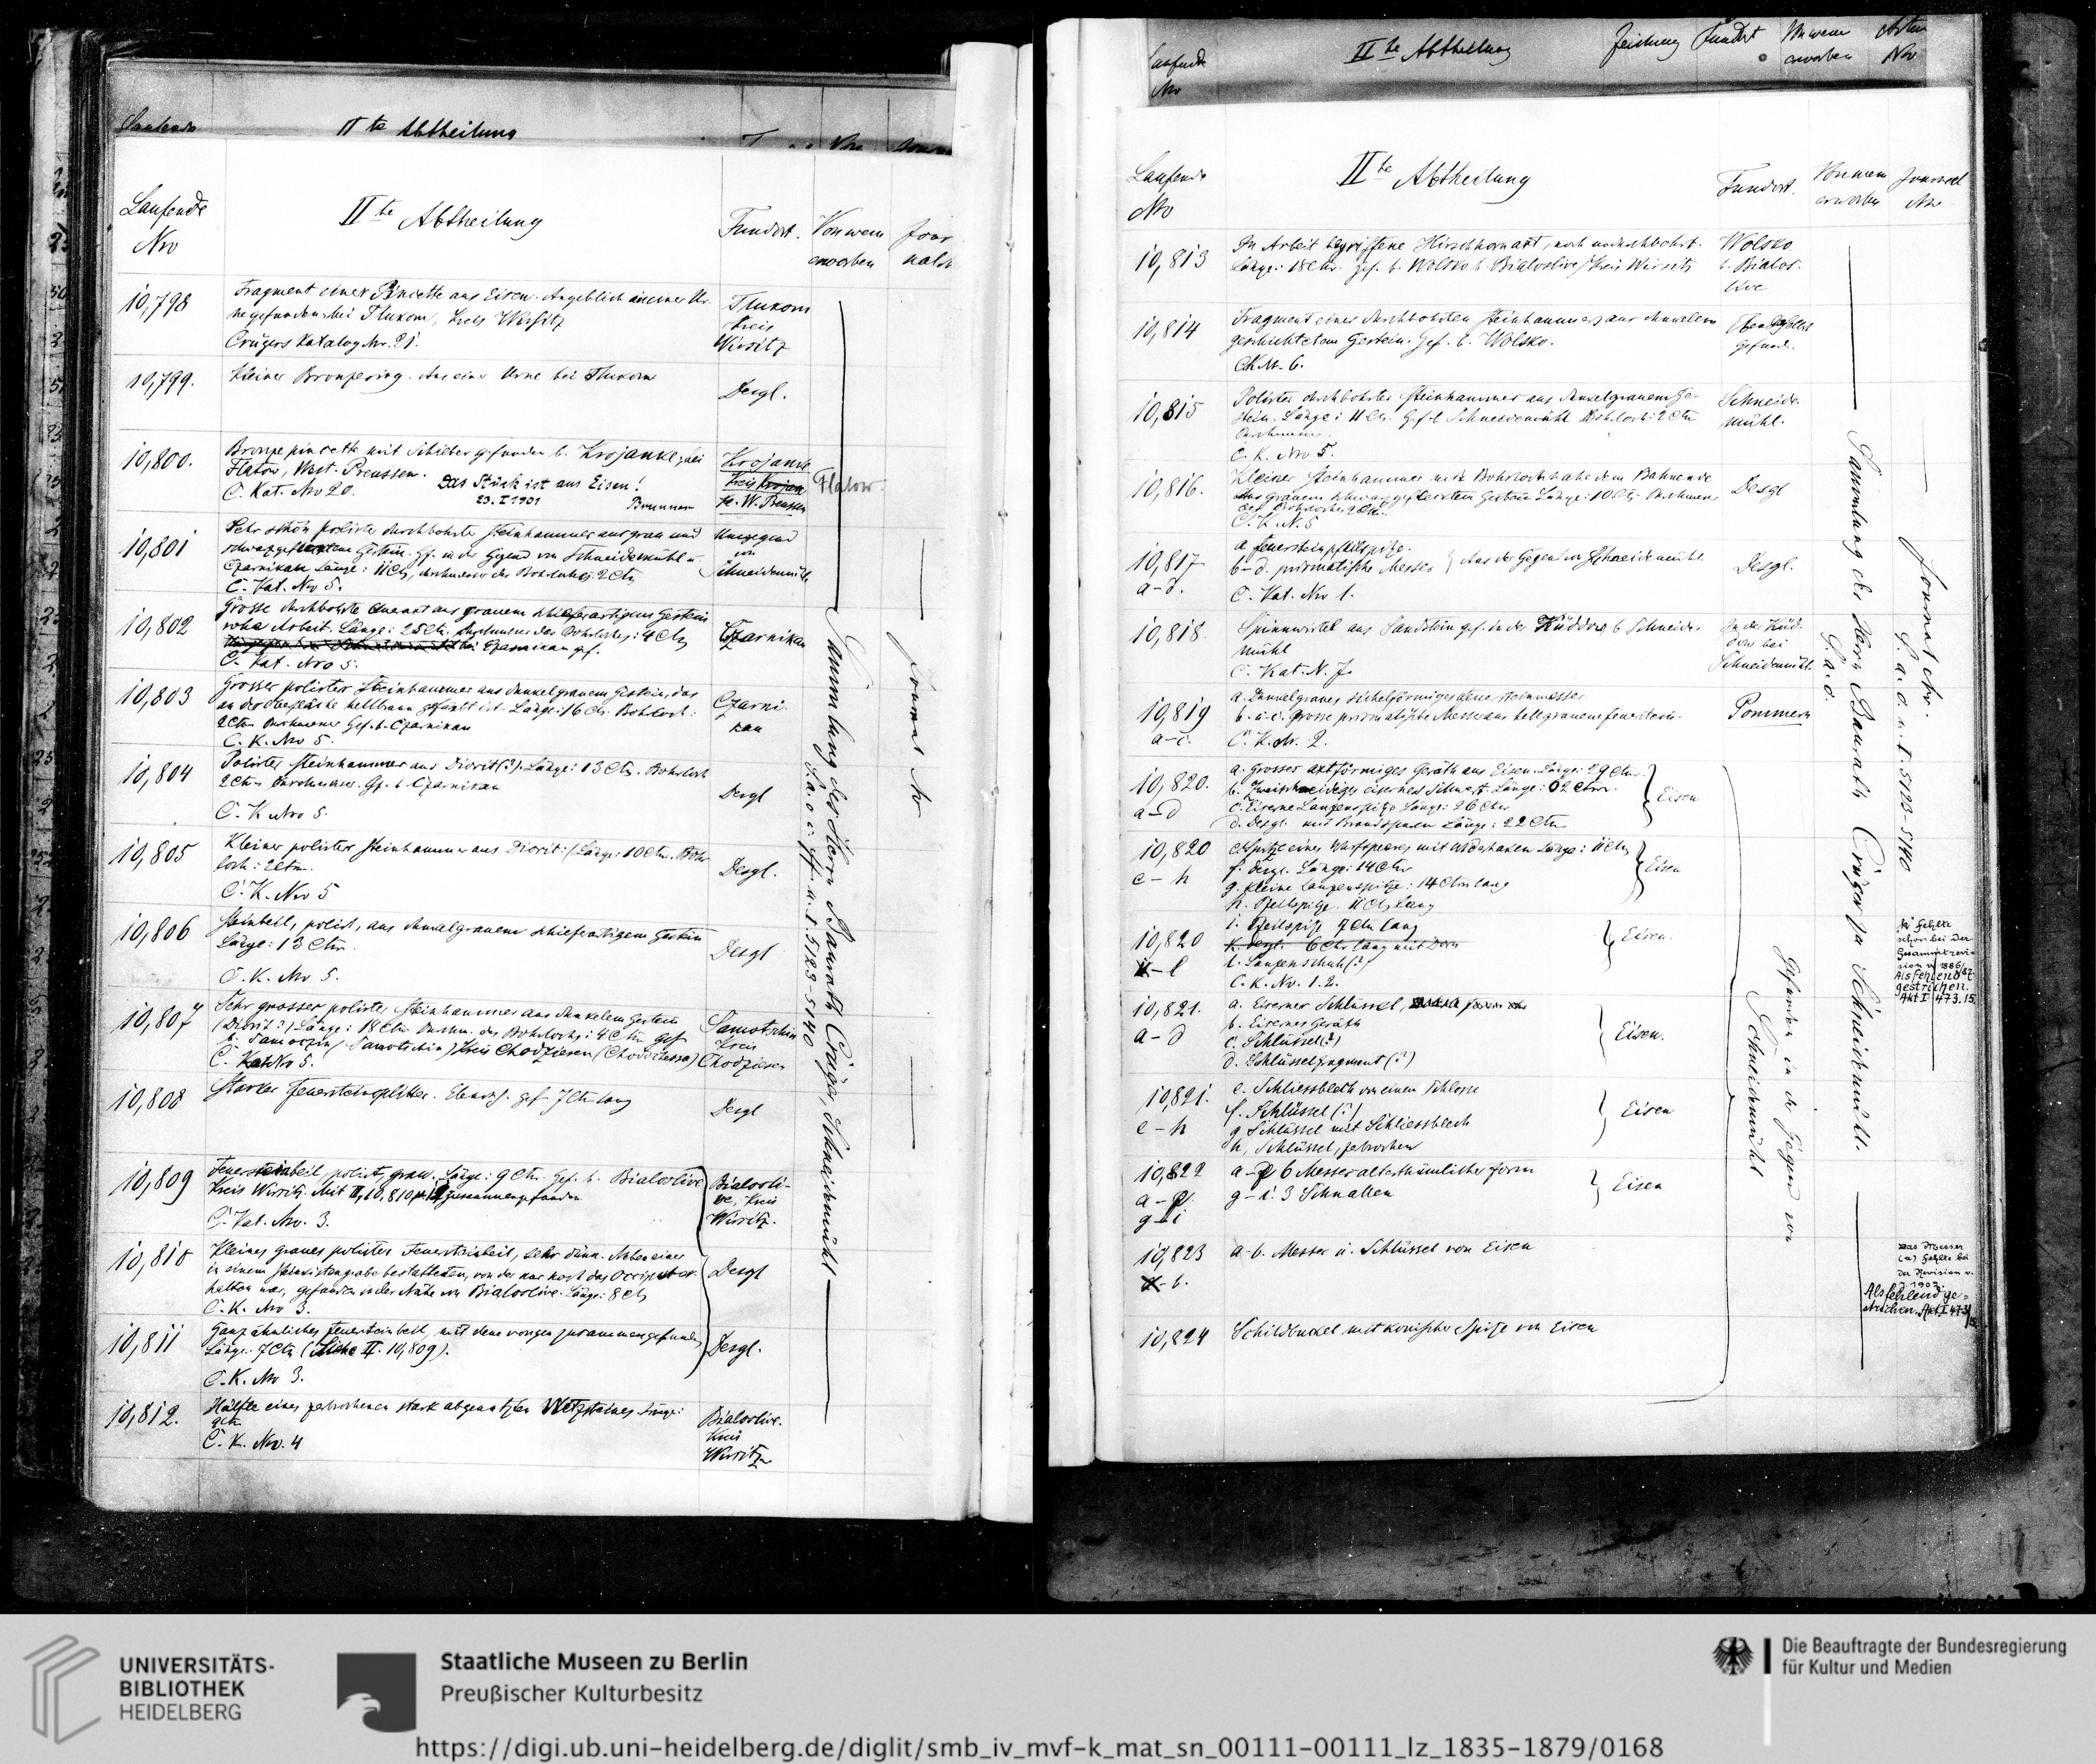 Laufende
IIte Abtheilung
Laufende
Nro
IIte Abtheilung
Fundort.
Von wem
erworben
Jour
nalN
10,798
Fragment einer Pincette aus Eisen. Angeblich in einer Ur-
ne gefunden bei Tlukom, Kreis Wirsitz
Crügers Katalog Nr. 21.
Tlukom
Kreis
Wirsitz
10,799.
Kleiner Bronzering. Aus einer Urne bei Tlukom
Desgl.
10,800.
Bronzepincette mit Schieber gefunden b. Krojanke, bei
Flatow, West-Preussen.
C. Kat. Nro 20.
Das Stück ist aus Eisen!
23.I.1901
Brunner
Krojanke
Kreis Krojan
W. Preussen
Flatow
10,801
Sehr schön polirter durchbohrter Steinhammer aus grau und
schwarzgeflecktem Gestein. Gf. in der Gegend von Schneidemühl u
Czarnikau Länge: 11 Ctm, durchmesser des Bohrloches: 2 Ctm
C. Kat. Nro 5.
Umgegend
von
Schneidemühl
10,802
Grosse durchbohrte aus grauem schieferartigem Gestein
rohe Arbeit. Länge: 25 Ctm. Durchmesser des Bohrloches: 4 Ctm
bei Czarnikau gef.
C. Kat. Nro 5.
Czarnikau
10,803
Grosser polirter Steinhammer aus dunkelgrauem Gestein, das
an der Oberfläche hellbraun gefärbt ist. Länge: 16 Ctm. Bohrloch:
2 Ctm Durchmesser Gef. b. Czarnikau
C. K. Nro 5.
Czarni-
kau
10,804
Polirter Steinhammer aus Diorit(?). Länge: 13 Ctm. Bohrloch
2 Ctm Durchmesser. Gf. b. Czarnikau
C. K Nro 5.
Desgl
10,805
Kleiner polirter Steinhammer aus Diorit: Länge: 10 Ctm. Bohr
loch: 2 Ctm.
C. K. Nro 5
Desgl.
10,806
Steinbeil, polirt, aus dunkelgrauem schieferartigem Gestein
Länge: 13 Ctm.
C. K. Nro 5.
Desgl
10,807
Sehr grosser polirter Steinhammer aus dunkelem Gestein
(Diorit?) Länge: 18 Ctm Durchm. des Bohrlochs: 4 Ctm gef
b. Samoczin (Samotschin) Kreis Chodziesen (Chodziesen)
C. Kat Nro 5.
Samotschin
Kreis
Chodziesen
10,808
Starker Feuersteinsplitter. Ebends. gef 7 Ctm lang
Desgl
10,809
Feuersteinbeil, polirt, grau. Länge: 9 Ctm. Gef. b. Bialosliwe
Kreis Wirsitz. Mit II, 10,810 u. 11 zusammengefunden
C. Kat. Nro. 3.
Bialosli-
we, Kreis
Wirsitz.
10,810
Kleines graues polirtes Feuersteinbeil, sehr dünn. Neben einer
in einem Steinkistengrabe bestatteten, von der nur noch das Occiput er-
halten war, gefunden in der Nähe von Bialosliwe. Länge: 8 Ctm
C. K. Nro 3.
Desgl
10,811
Ganz ähnliches Feuersteinbeil, mit dem vorigen zusammengefunden
Länge: 7 Ctm (Siehe II. 10,809).
C. K. Nro 3.
Desgl.
10,812.
Hälfte eines zerbrochenen stark abgenutzten Wetzsteines. Länge:
9 Ctm
C. K. Nro. 4
Bialosliwe.
Kreis
Wirsitz
Sammlung des Herrn Baurath Crüger, Schneidemühl
S. a. o. I. 5123-5140
Journal Nr
Laufende
Nro
IIte Abtheilung
Zeichnung
Fundort
Von wem
erworben
Acten
Nro
Laufende
Nro
IIte Abtheilung
Fundort.
Von wem
erworben
Journal
Nro
10,813
In Arbeit begriffene Hirschhornaxt, noch undurchbohrt.
Länge: 18 Ctm. gef. b. Wolsko b. Bialosliwe, Kreis Wirsitz
Wolsko
b. Bialos-
liwe
10,814
Fragment eines durchbohrten Steinhammers aus dunkelem
geschichtetem Gestein. Gef. b. Wolsko.
C.K. Nr. 6.
Ebendaselbst
gefund.
10,815
Polirter durchbohrter Steinhammer aus dunkelgrauem Ge-
stein. Länge: 11 Ctm. Gef. b Schneidemühl Bohrloch: 2 Ctm
Durchmesser.
C. K. Nro 5.
Schneide-
mühl.
10,816.
Kleiner Steinhammer mit Bohrloch nahe dem Bahnende
Aus grauem schwarzgeflecktem Gestein Länge: 10 Ctm. Durchmesser
des Bohrloches 2 Ctm.
C. K. N. 5
Desgl
10,817
a-d.
a Feuersteinpfeilspitze.
b-d. prismatische Messer } Aus der Gegend von Schneidemühl.
C. Kat. Nro 1.
Desgl.
10,818.
Spinnwirtel aus Sandstein gef. in der Küddow b Schneide-
mühl
C. Kat. N. 7.
In der Küd-
dow bei
Schneidemühl.
10,819
a-c.
a. Dunkelgraues sichelförmiges Feuersteinmesser
b. u. c. Grosse prismatische Messer aus hellgrauem Feuerstein.
C. K. Nr. 2.
Pommern
10,820.
a-d
a. Grosses axtförmiges Geräth aus Eisen. Länge: 29 Ctm.
b. Zweischneidiges eisernes Schwert. Länge: 62 Ctm.
c. Eiserne Lanzenspitze Länge: 26 Ctm
d. Desgl. Länge: 22 Ctm
Eisen
10,820
e-h
e. Spitze eines Wurfspeeres mit Widerhaken Länge: 11 Ctm
f. Desgl. Länge: 14 Ctm
g. Kleine Lanzenspitze: 14 Ctm lang
h. Pfeilspitze. 11 Ctm lang
Eisen
10,820
i-l
i. Pfeilspitze 7 Ctm lang
k. Desgl. 6 Ctm lang mit Dorn
l. Lanzenschuh(?)
C. K. No. 12.
Eisen.
10,821.
a-d
a. Eiserner Schlüssel,
b. Eisernes Geräth
c. Schlüssel(?)
d. Schlüsselfragment(?)
Eisen.
10,821.
e-h
e. Schliessblech von einem Schlosse
f. Schlüssel(?)
g Schlüssel mit Schliessblech
h, Schlüssel, zerbrochen
Eisen
10,822
a-f
g-i
a-f 6 Messer alterthümlicher Form
g-i. 3 Schnallen
Eisen
10,823
a-b.
a-b. Messer u. Schlüssel von Eisen
10,824
Schildbuckel mit konischer Spitze von Eisen
Gefunden in der Gegend von
Schneidemühl
Sammlung des Herrn Baurath Crüger zu Schneidemühl.
S. a. o.
Journal Nr.
S. a. o. u. I. 5123-5140
"k" fehlte
schon bei der
Gesammtrevi-
sion v. 1886/87
Als fehlend
gestrichen.
Akt I 473.15.
Das Messer
(a) fehlte bei
der Revision v.
J. 1903.
Als fehlend ge-
strichen. Akt I 473/15.
UNIVERSITÄTS-
BIBLIOTHEK
HEIDELBERG
Staatliche Museen zu Berlin
Preußischer Kulturbesitz
Die Beauftragte der Bundesregierung
für Kultur und Medien
https://digi.ub.uni-heidelberg.de/diglit/smb_iv_mvf-k_mat_sn_00111-00111_lz_1835-1879/0168